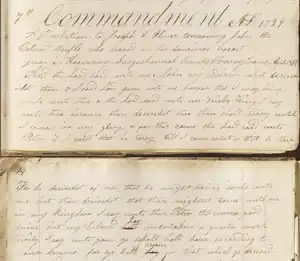 7th Commandment AD 1829
A Revelation to Joseph & Oliver concerning John the
Beloved Disciple who leaned on his Saviours breast
given in Harmony Susquehannah County Pennsylvania
And the Lord said unto me John my Beloved what desirest
thou & I said Lord give unto me power that I may bring
souls unto thee & the Lord said unto me Verily Verily I say
unto thee because thou desiredst this thou shalt tarry untill
I come in my glory & for this cause the Lord said unto
Peter if I will that he tarry till I come what is that to thee
14
For he desiredst of me that he might bring souls unto
me but thou desiredst that thou might come unto me
in my Kingdom I say unto thee Peter this was a good
desire but my Beloved hath undertaken a greater work
Verily I say unto you ye shall both have according to
your desires for ye both joy in that which ye desired